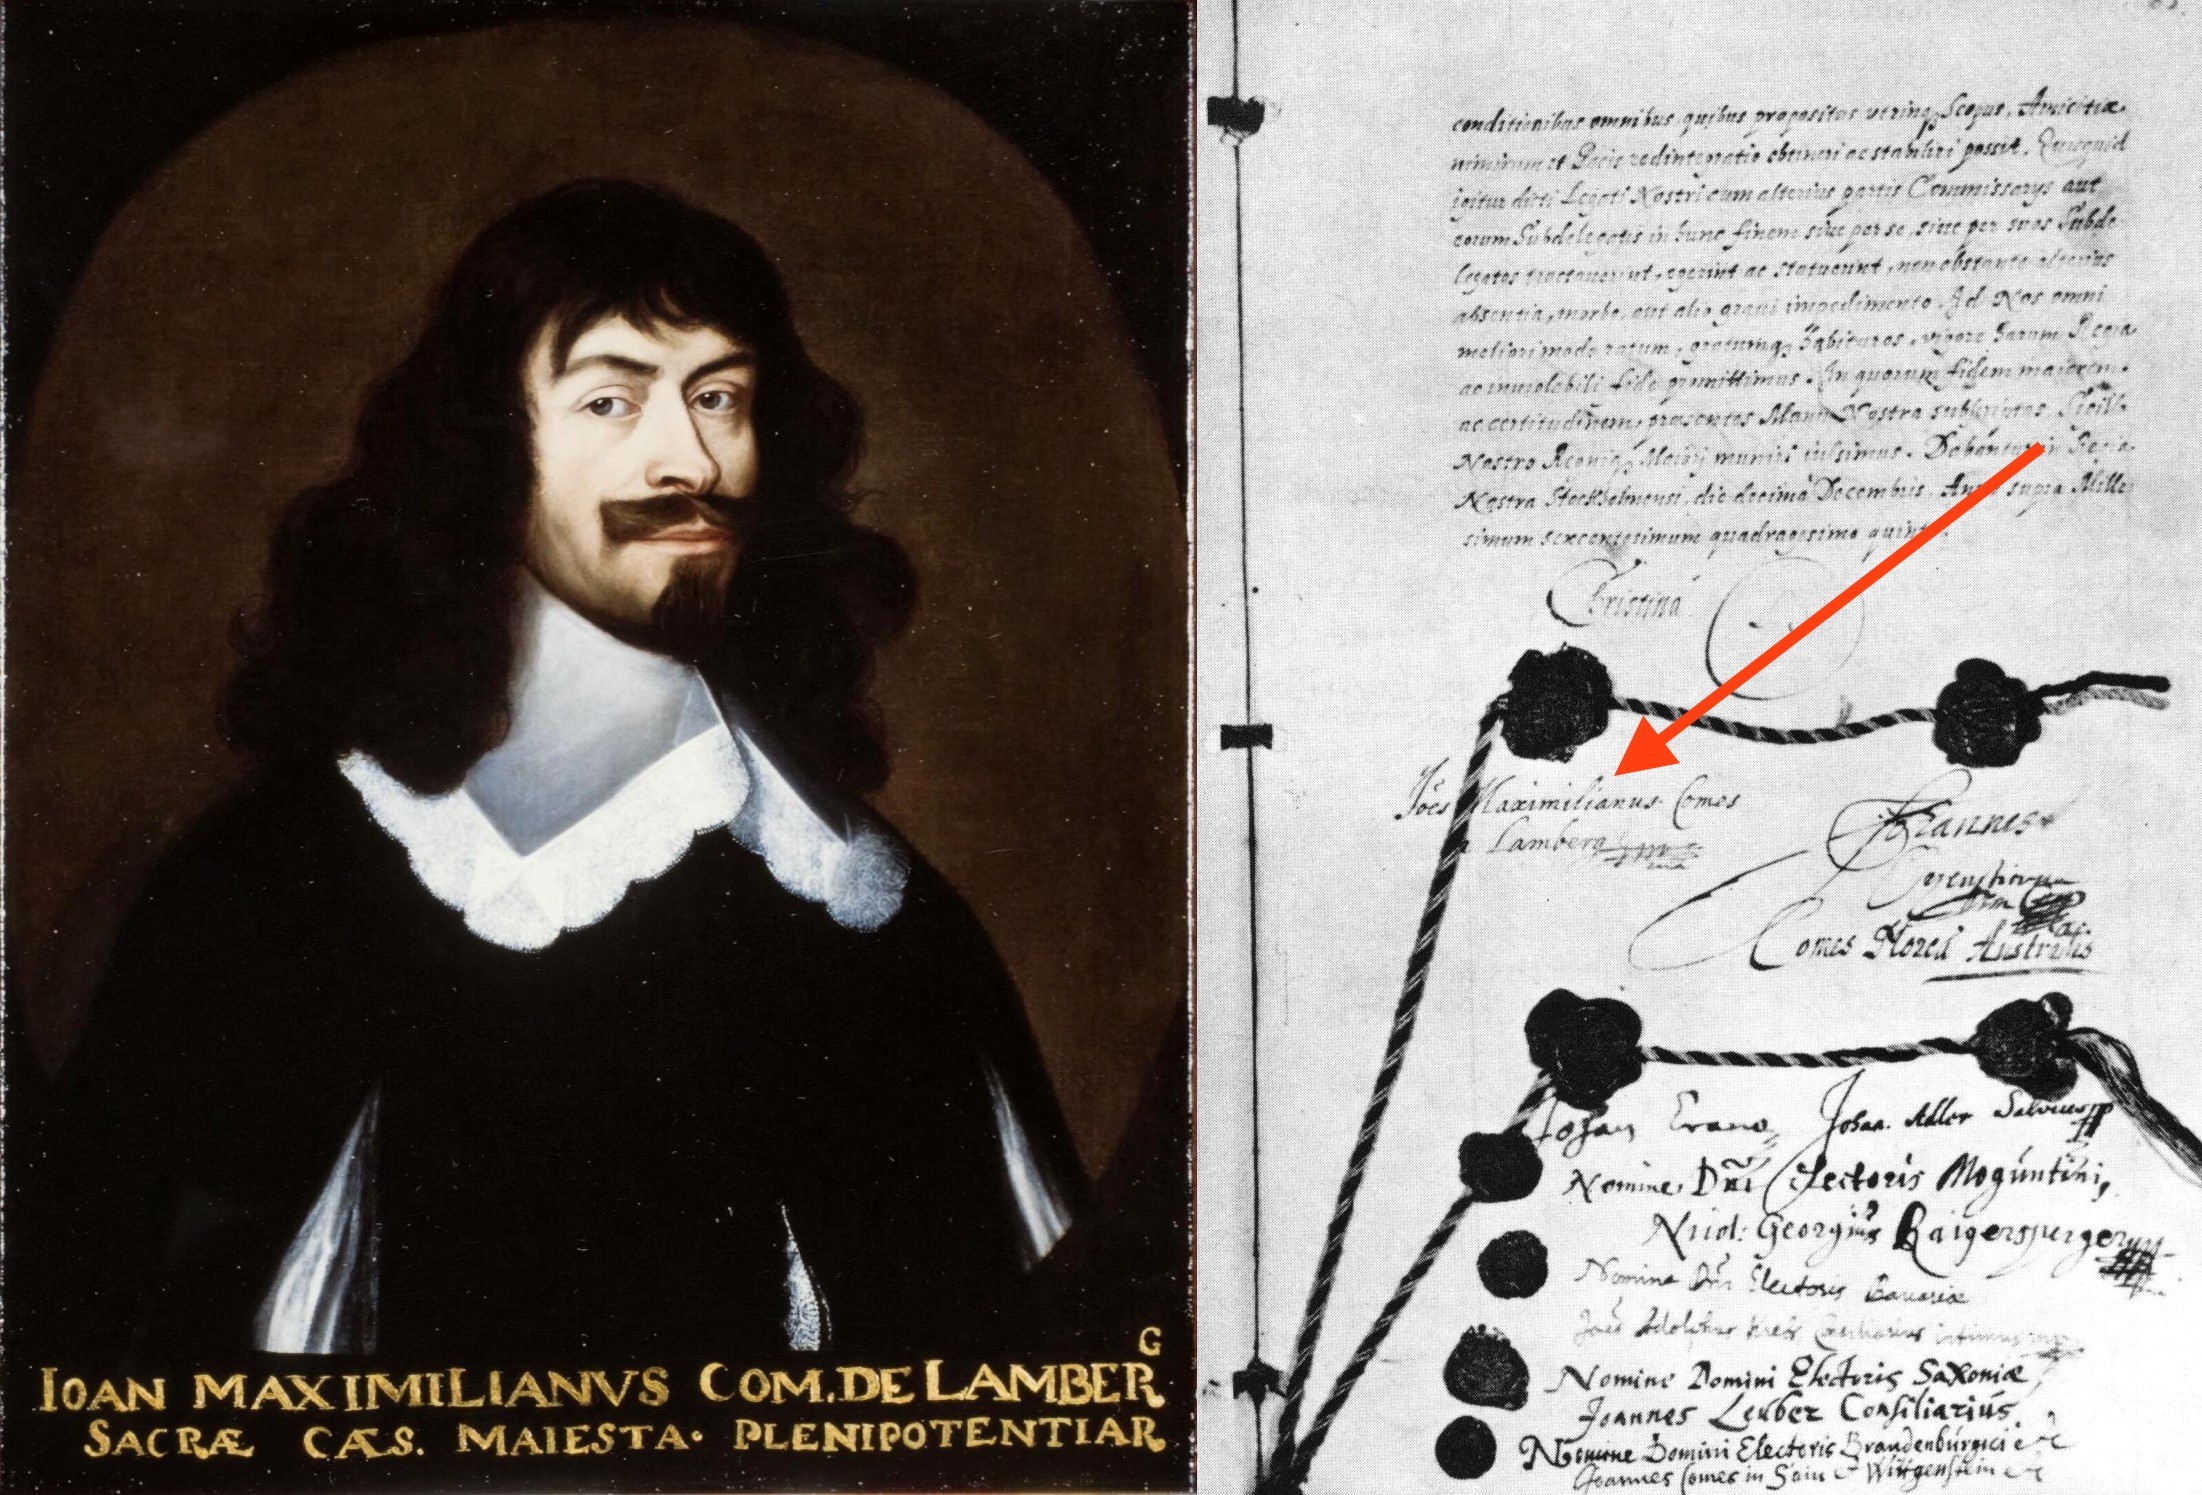 G
IOAN MAXIMILIANVS COM. DE LAMBER
SACRÆ CÆS. MAIESTA· PLENIPOTENTIAR
conditionibus omnibus quibus propositus utrinq Scopus, Amicitiæ
nimirum et Pacis redintegratio obtineri ac stabiliri possit. Quicquid
igitur dicti Legati Nostri cum alterius partis Commissarys aut
eorum Subdelegatis in hunc finem sive per se, sive per suos Subde
legatos tractaverint, egerint ac statuerint, non obstante alterius
absentia, morbo, aut alio gravi impedimento. Ad Nos omni
meliori modo ratum, gratumq habituros, vigore harum Regia
ac inviolabili fide promittimus. In quorum fidem maiorem
ac certitudinem, præsentes Manu Nostra subscriptas, Sigill
Nostro Regniq muniri iussimus. Dabantur in Regia
Nostra Stockholmensi, die decima Decembris, Anno supra Mille
simum sexcentesimum quadragesimo quinto.
Christina
Joes Maximilianus Comes
a Lamberg
Joannes
Comes Noster Australis
Johan Johan Adler Salvius
Nomine Dni Electoris Moguntini,
Nicol: Georgius Raigersperger
Nomine Dni Electoris Bavariæ
Joes Adolphus Krebs Consiliarius intimus
Nomine Domini Electoris Saxoniæ
Joannes Leuber Consiliarius
Nomine Domini Electoris Brandenburgici etc
Joannes Comes in Sain & Wittgenstein etc